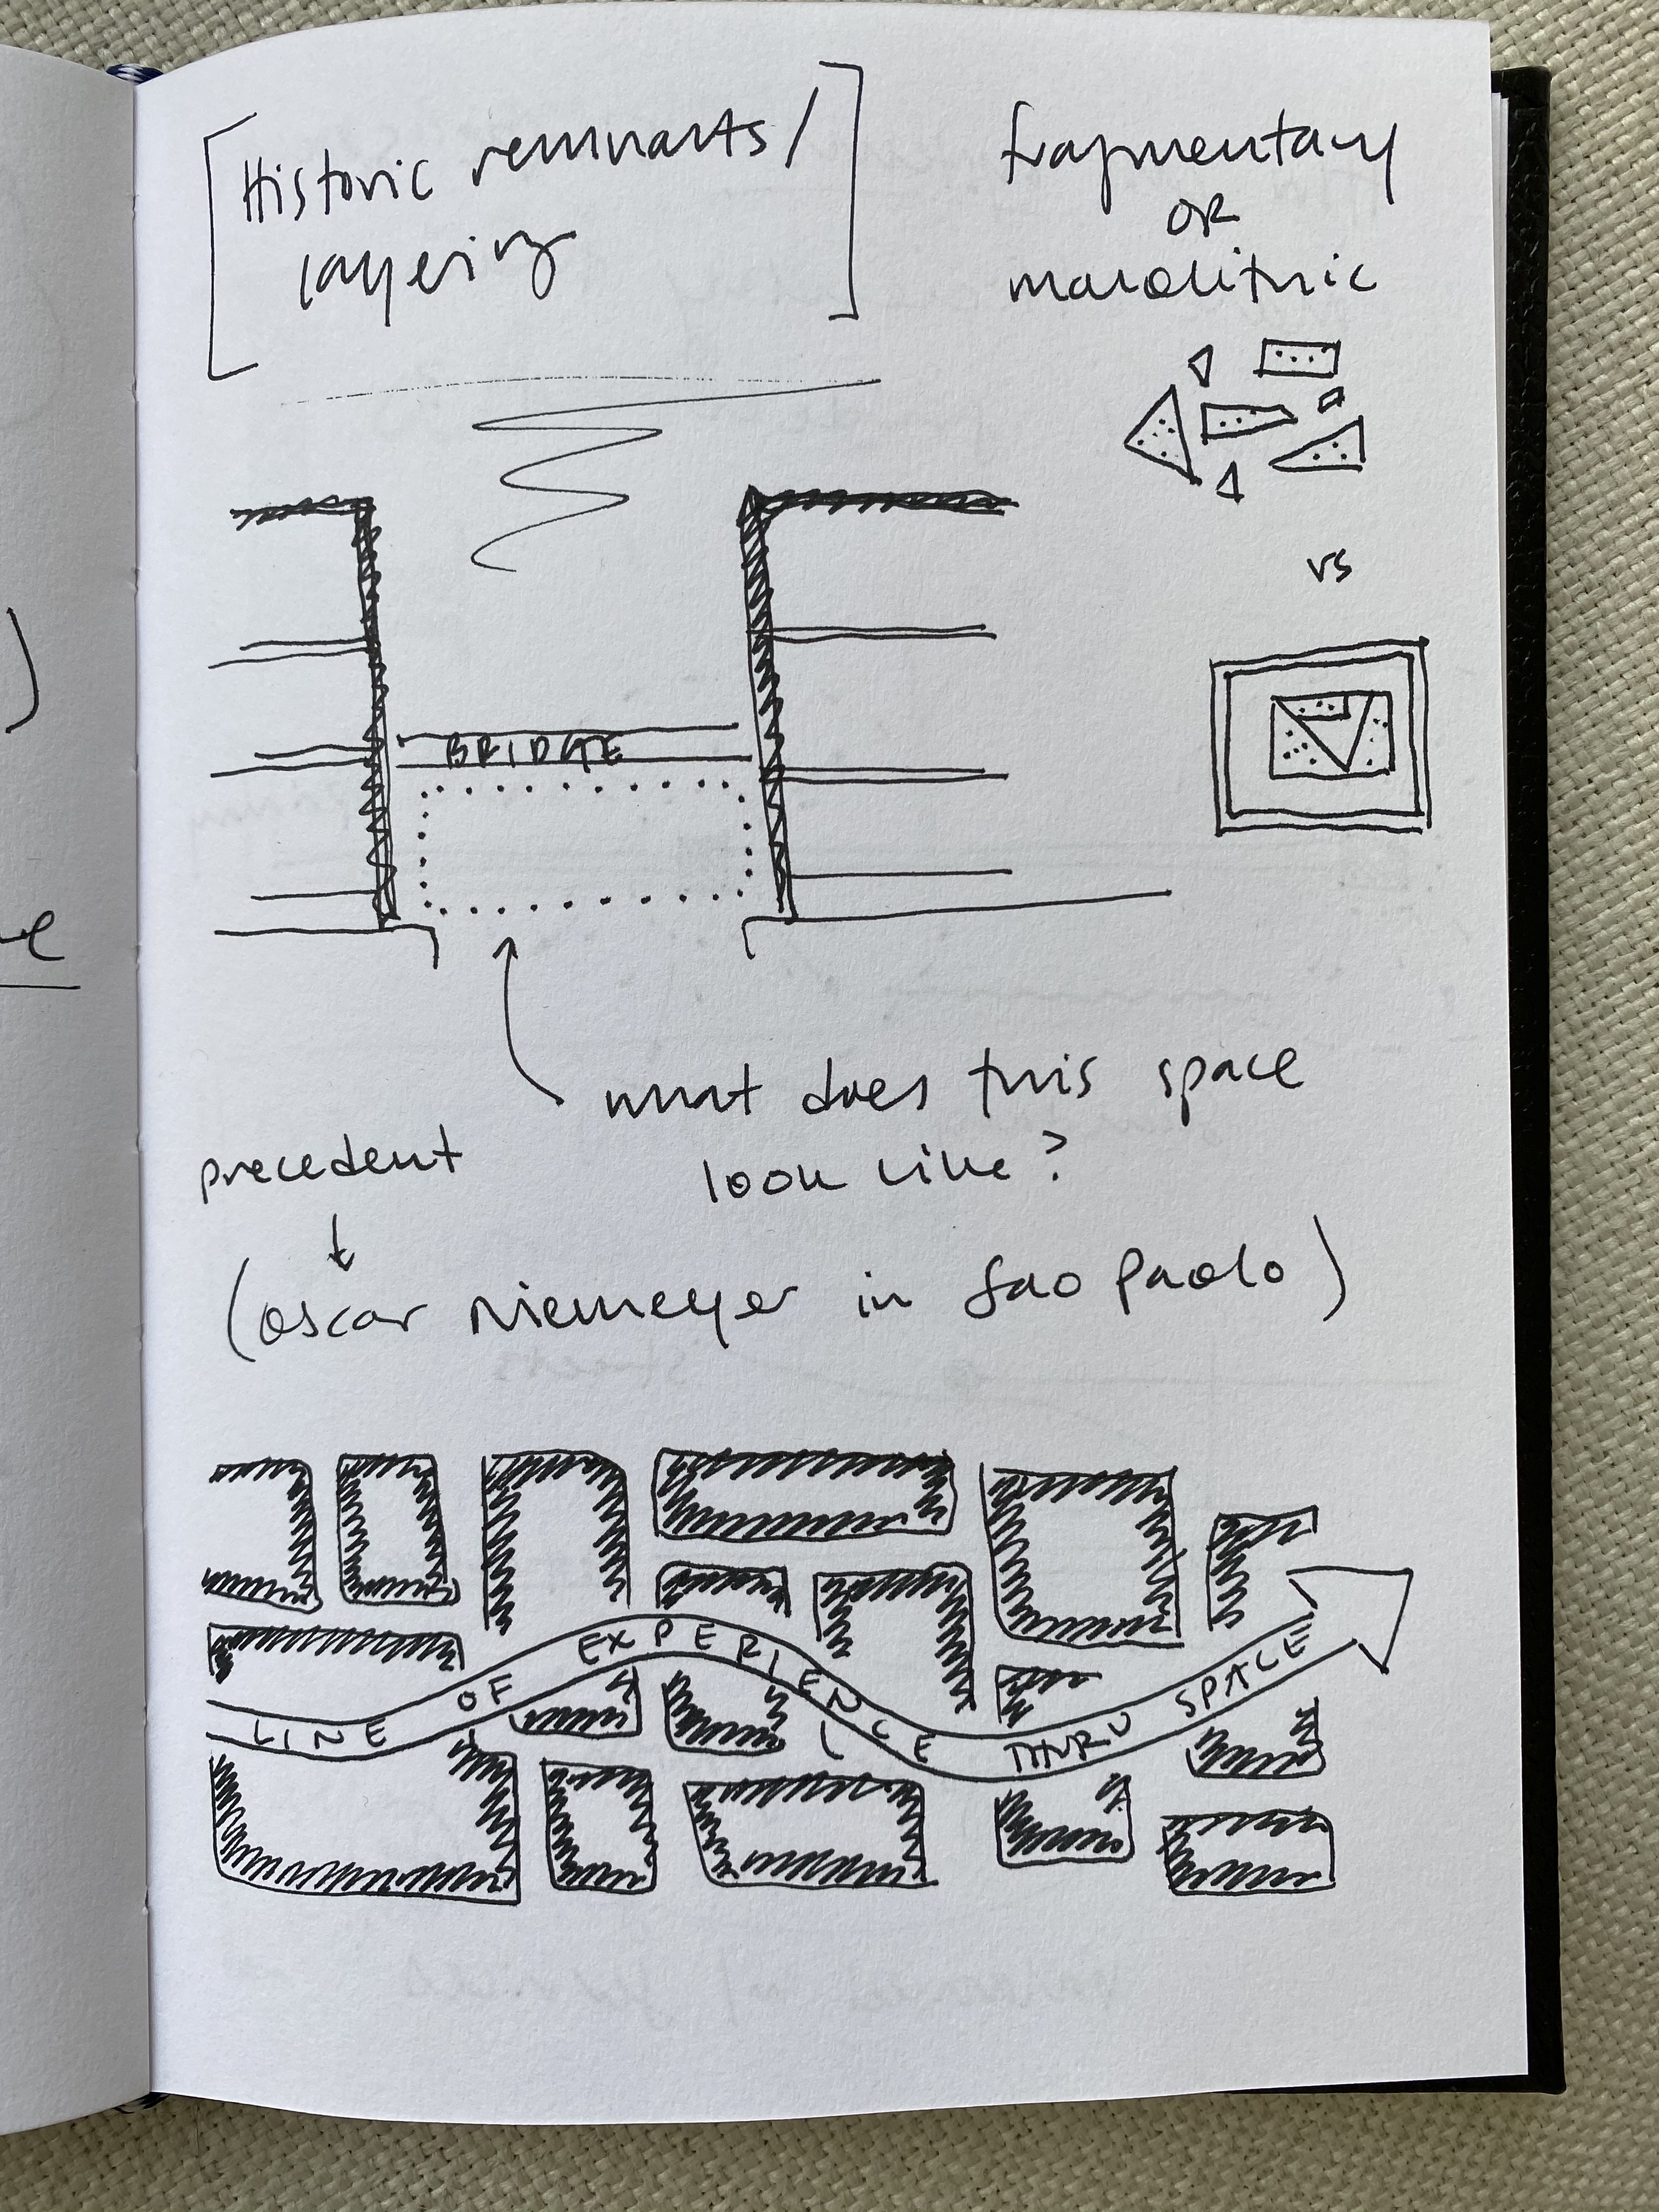 [Historic remnants/
layering]
fragmentary
OR
monolithic
vs
BRIDGE
what does this space
look like?
precedent
(oscar niemeyer in Sao Paolo)
LINE OF EXPERIENCE THRU SPACE